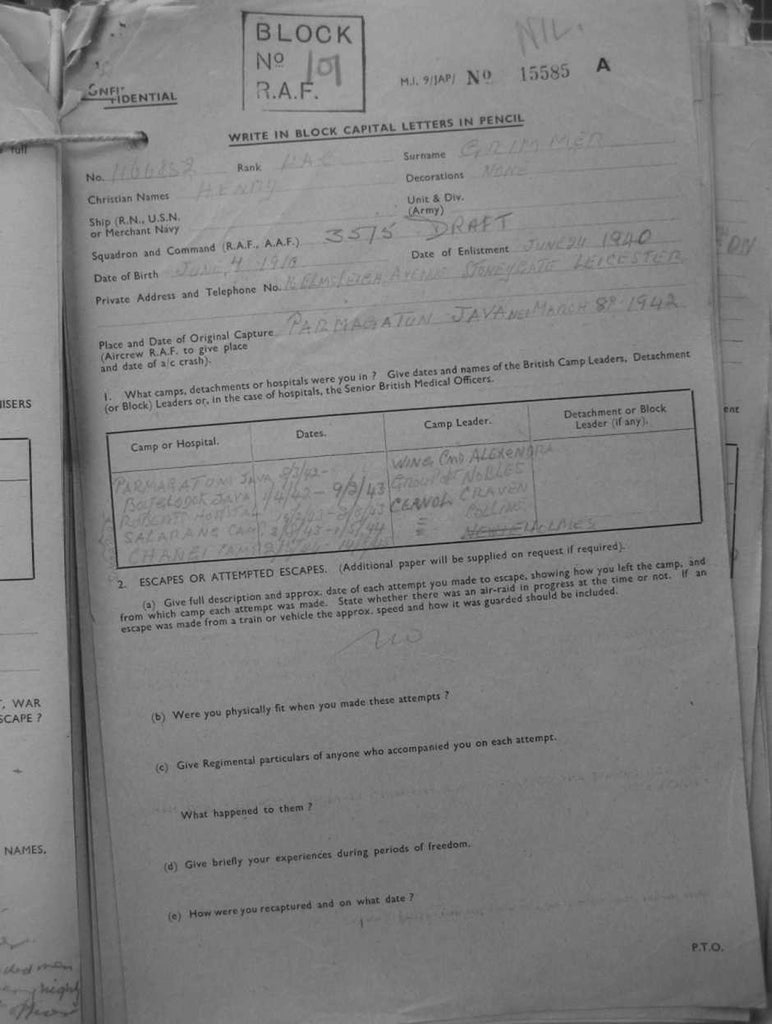 BLOCK
No 101
R.A.F.
NIL.
CONFIDENTIAL
M.I. 9/JAP/ No 15585 A
WRITE IN BLOCK CAPITAL LETTERS IN PENCIL
No. 1166852 Rank LAC Surname GRIMMER
Christian Names HENRY Decorations NONE
Ship (R.N., U.S.N. or Merchant Navy Unit & Div. (Army)
Squadron and Command (R.A.F., A.A.F.) 3575 DRAFT
Date of Birth JUNE 4 1918 Date of Enlistment JUNE 24 1940
Private Address and Telephone No. AVENUE STONEYGATE LEICESTER
Place and Date of Original Capture PARMAGATON JAVA MARCH 8 1942
(Aircrew R.A.F. to give place
and date of a/c crash).
1. What camps, detachments or hospitals were you in ? Give dates and names of the British Camp Leaders, Detachment
(or Block) Leaders or, in the case of hospitals, the Senior British Medical Officers.
Camp or Hospital. Dates. Camp Leader. Detachment or Block Leader (if any).
PARMAGATON JAVA 8/3/42- WING CMD ALEXENDRA
JAVA 1/4/42 - 9/3/43 GROUP NOBLES
ROBERTS HOSPITAL CRAVEN
SALARANG CAMP COLLINS
CHANGI CAMP
2. ESCAPES OR ATTEMPTED ESCAPES. (Additional paper will be supplied on request if required).
(a) Give full description and approx. date of each attempt you made to escape, showing how you left the camp, and
from which camp each attempt was made. State whether there was an air-raid in progress at the time or not. If an
escape was made from a train or vehicle the approx. speed and how it was guarded should be included.
NO
(b) Were you physically fit when you made these attempts ?
(c) Give Regimental particulars of anyone who accompanied you on each attempt.
What happened to them ?
(d) Give briefly your experiences during periods of freedom.
(e) How were you recaptured and on what date ?
P.T.O.
ISERS
, WAR
SCAPE ?
NAMES,